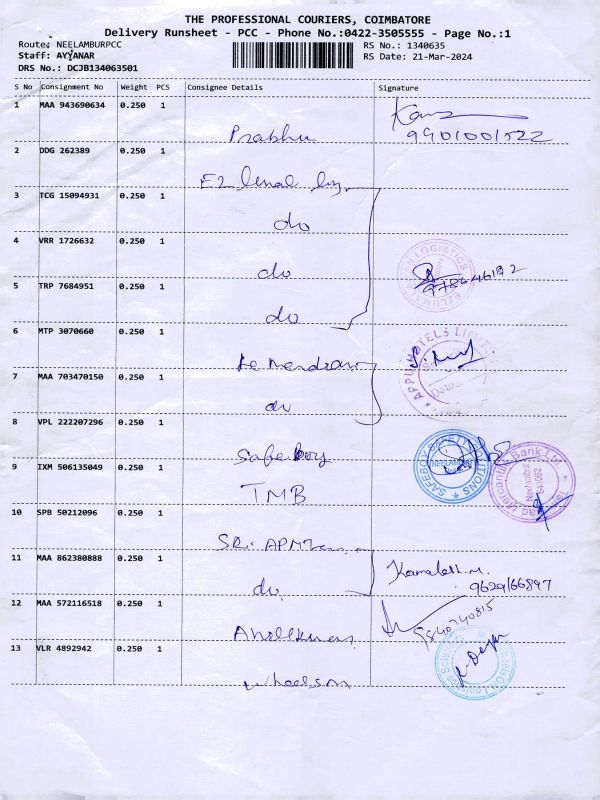 THE PROFESSIONAL COURIERS, COIMBATORE
Delivery Runsheet - PCC - Phone No.:0422-3505555 - Page No.:1
Route: NEELAMBURPCC
RS No.: 1340635
Staff: AYYANAR
RS Date: 21-Mar-2024
DRS No.: DCJB134063501
S No Consignment No Weight PCS Consignee Details Signature
1 MAA 943690634 0.250 1
Prabhu 9901001522
2 DDG 262389 0.250 1
3 TCG 15094931 0.250 1
do
4 VRR 1726632 0.250 1
do
5 TRP 7684951 0.250 1
do
6 MTP 3070660 0.250 1
7 MAA 703470150 0.250 1
do
8 VPL 222207296 0.250 1
Safe Boy
SAFEBOY SAFETY SOLUTIONS
9 IXM 506135049 0.250 1
TMB
10 SPB 50212096 0.250 1
11 MAA 862380888 0.250 1
do
9629166897
12 MAA 572116518 0.250 1
9840740815
13 VLR 4892942 0.250 1
wheelson